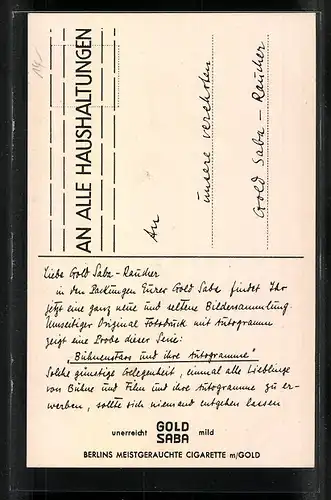 AN ALLE HAUSHALTUNGEN
An
unsere verehrten
Gold Saba - Raucher
Liebe Gold Saba - Raucher
in den Packungen Eurer Gold Saba findet Ihr
jetzt eine ganz neue und seltene Bildersammlung.
Umseitiger Original Fotodruck mit Autogramm
zeigt eine Probe dieser Serie:
"Bühnenstars und ihre Autogramme"
Solche günstige Gelegenheit, einmal alle Lieblinge
von Bühne und Film und ihre Autogramme zu er-
werben, sollte sich niemand entgehen lassen
unerreicht GOLD SABA mild
BERLINS MEISTGERAUCHTE CIGARETTE m/GOLD